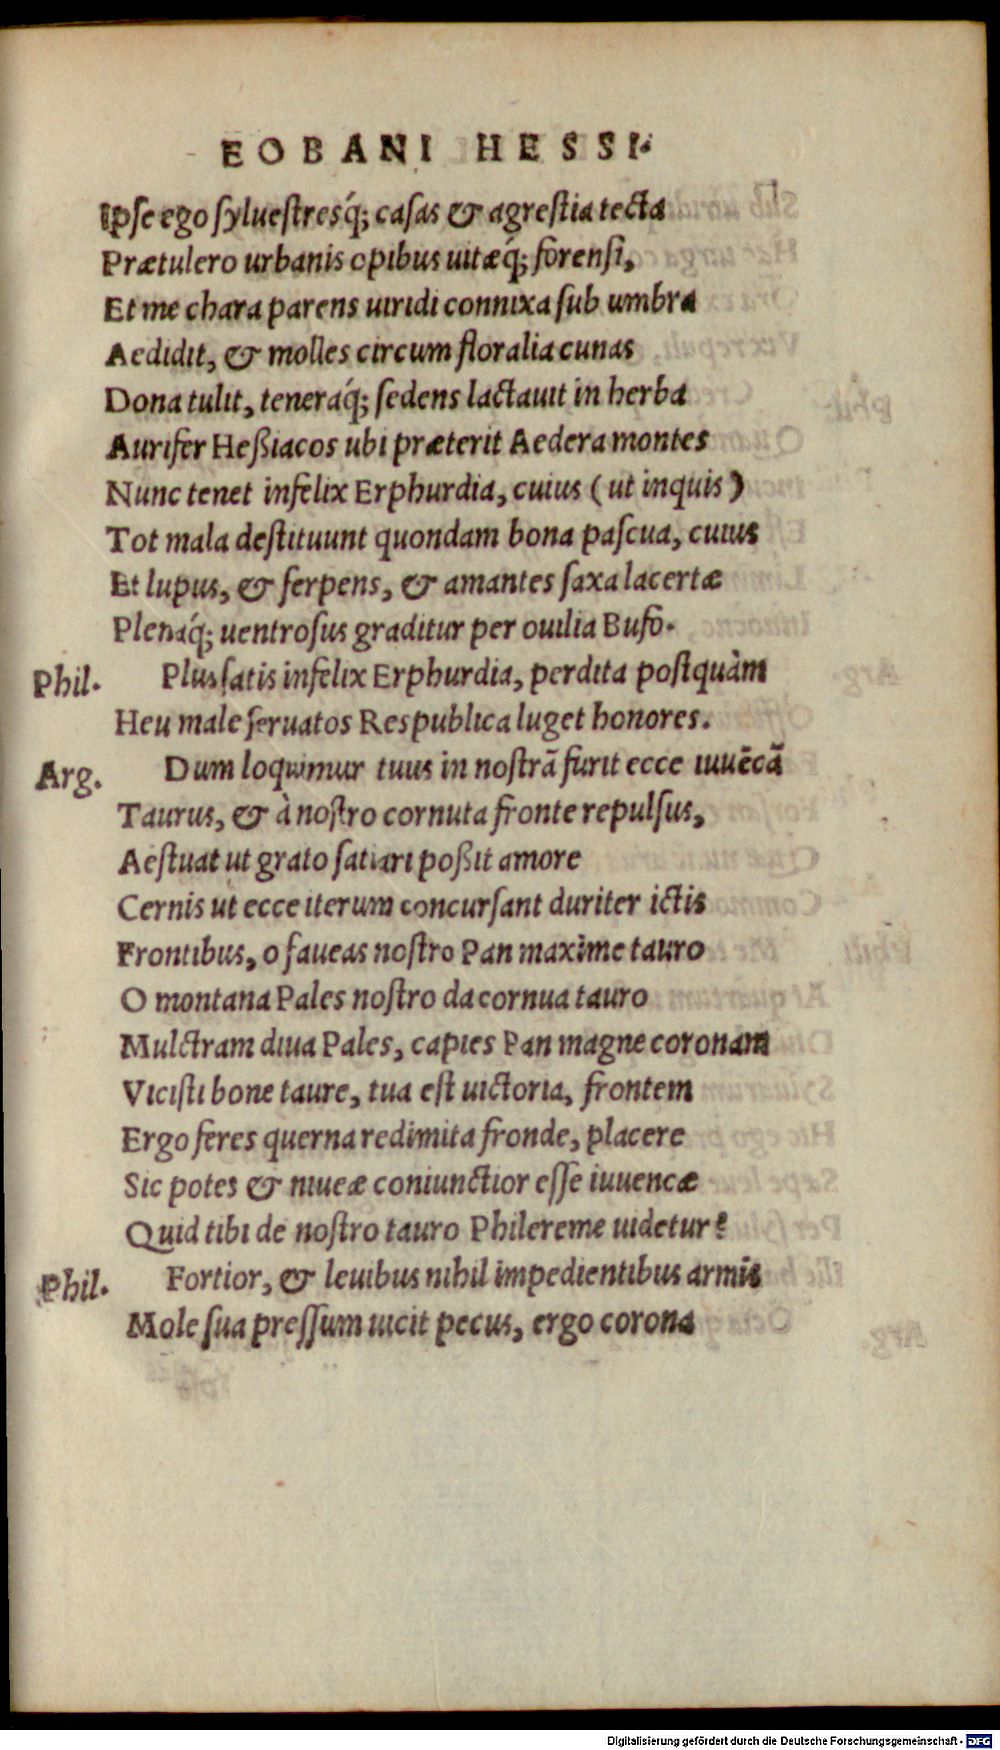 EOBANI HESSI.
Ipse ego syluestresq́; casas & agrestia tecta
Prætulero urbanis opibus uitæq́; forensi,
Et me chara parens uiridi connixa sub umbra
Aedidit, & molles circum floralia cunas
Dona tulit, teneraq́; sedens lactauit in herba
Aurifer Heßiacos ubi præterit Aedera montes
Nunc tenet infelix Erphurdia, cuius (ut inquis)
Tot mala destituunt quondam bona pascua, cuius
Et lupus, & serpens, & amantes saxa lacertæ
Plenaq́; uentrosus graditur per ouilia Bufo.
Phil. Plus satis infelix Erphurdia, perdita postquàm
Heu male seruatos Respublica luget honores.
Arg. Dum loquimur tuus in nostrā furit ecce iuuēcā
Taurus, & à nostro cornuta fronte repulsus,
Aestuat ut grato satiari poßit amore
Cernis ut ecce iterum concursant duriter ictis
Frontibus, o faueas nostro Pan maxime tauro
O montana Pales nostro da cornua tauro
Mulctram diua Pales, capies Pan magne coronam
Vicisti bone taure, tua est uictoria, frontem
Ergo feres querna redimita fronde, placere
Sic potes & niueæ coniunctior esse iuuencæ
Quid tibi de nostro tauro Philereme uidetur?
Phil. Fortior, & leuibus nihil impedientibus armis
Mole sua pressum uicit pecus, ergo corona
Digitalisierung gefördert durch die Deutsche Forschungsgemeinschaft - DFG